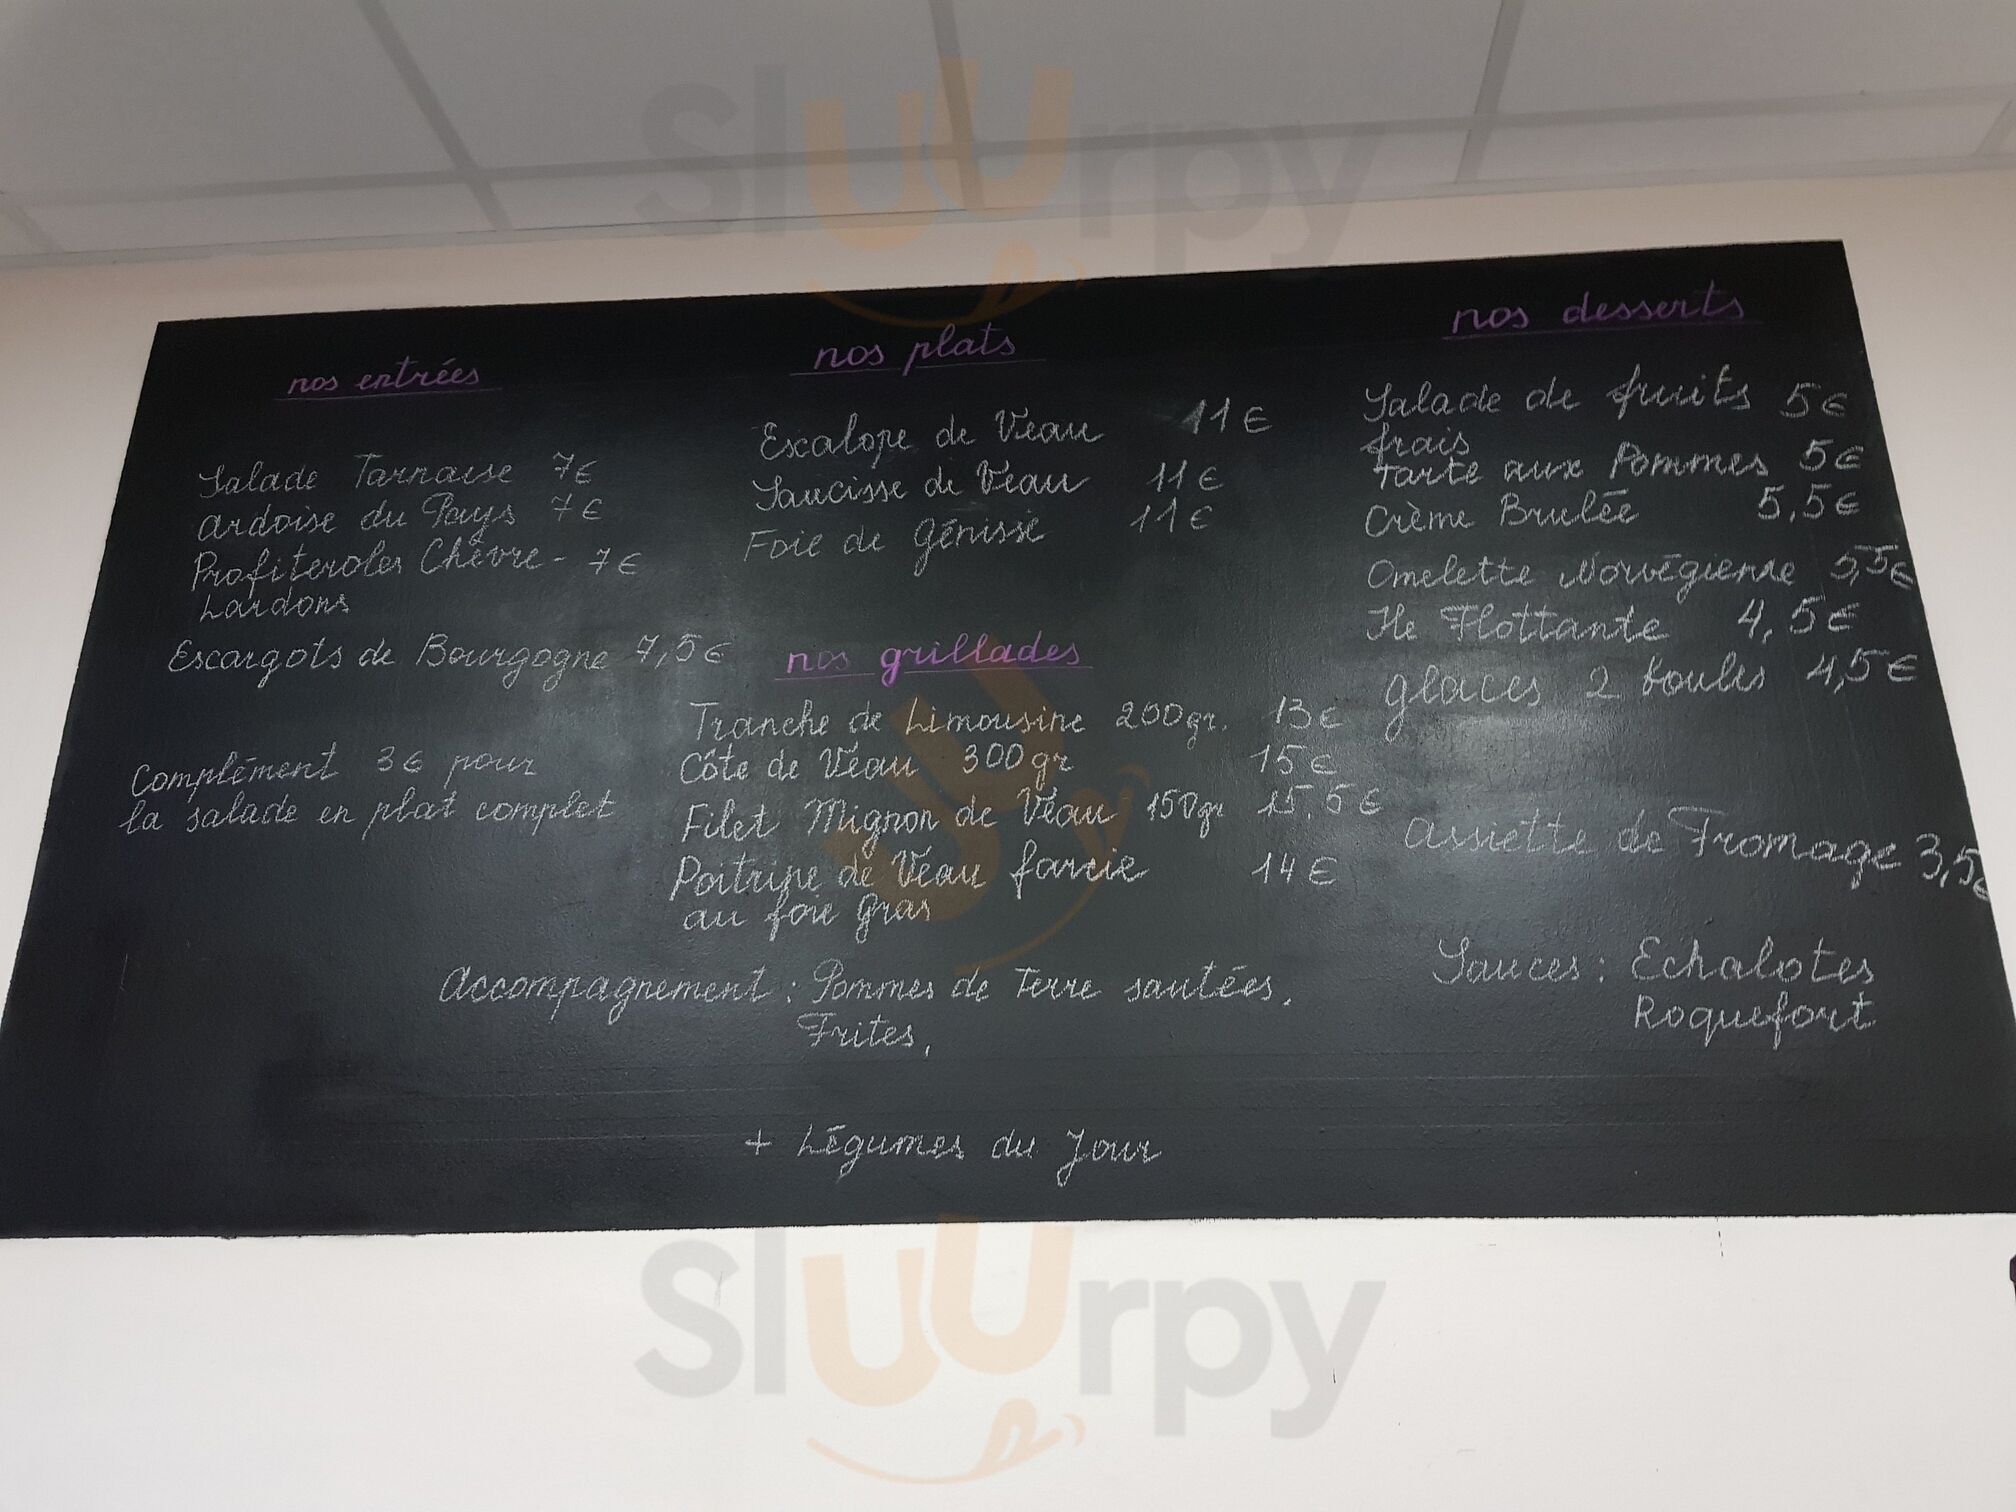 Sluurpy
nos entrées
Salade Tarnaise 7€
Ardoise du Pays 7€
Profiteroles Chèvre - 7€
Lardons
Escargots de Bourgogne 7,5€
Complément 3€ pour
la salade en plat complet
nos plats
Escalope de Veau 11€
Saucisse de Veau 11€
Foie de Génisse 11€
nos grillades
Tranche de Limousine 200gr. 13€
Côte de Veau 300gr 15€
Filet Mignon de Veau 150gr 15,5€
Poitrine de Veau farcie 14€
au foie gras
nos desserts
Salade de fruits 5€
frais
Tarte aux Pommes 5€
Crème Brulée 5,5€
Omelette Norvégienne 5,5€
Ile Flottante 4,5€
glaces 2 boules 4,5€
Assiette de Fromage 3,5€
Sauces : Echalotes
Roquefort
Accompagnement : Pommes de Terre sautées,
Frites,
+ Légumes du Jour
Sluurpy